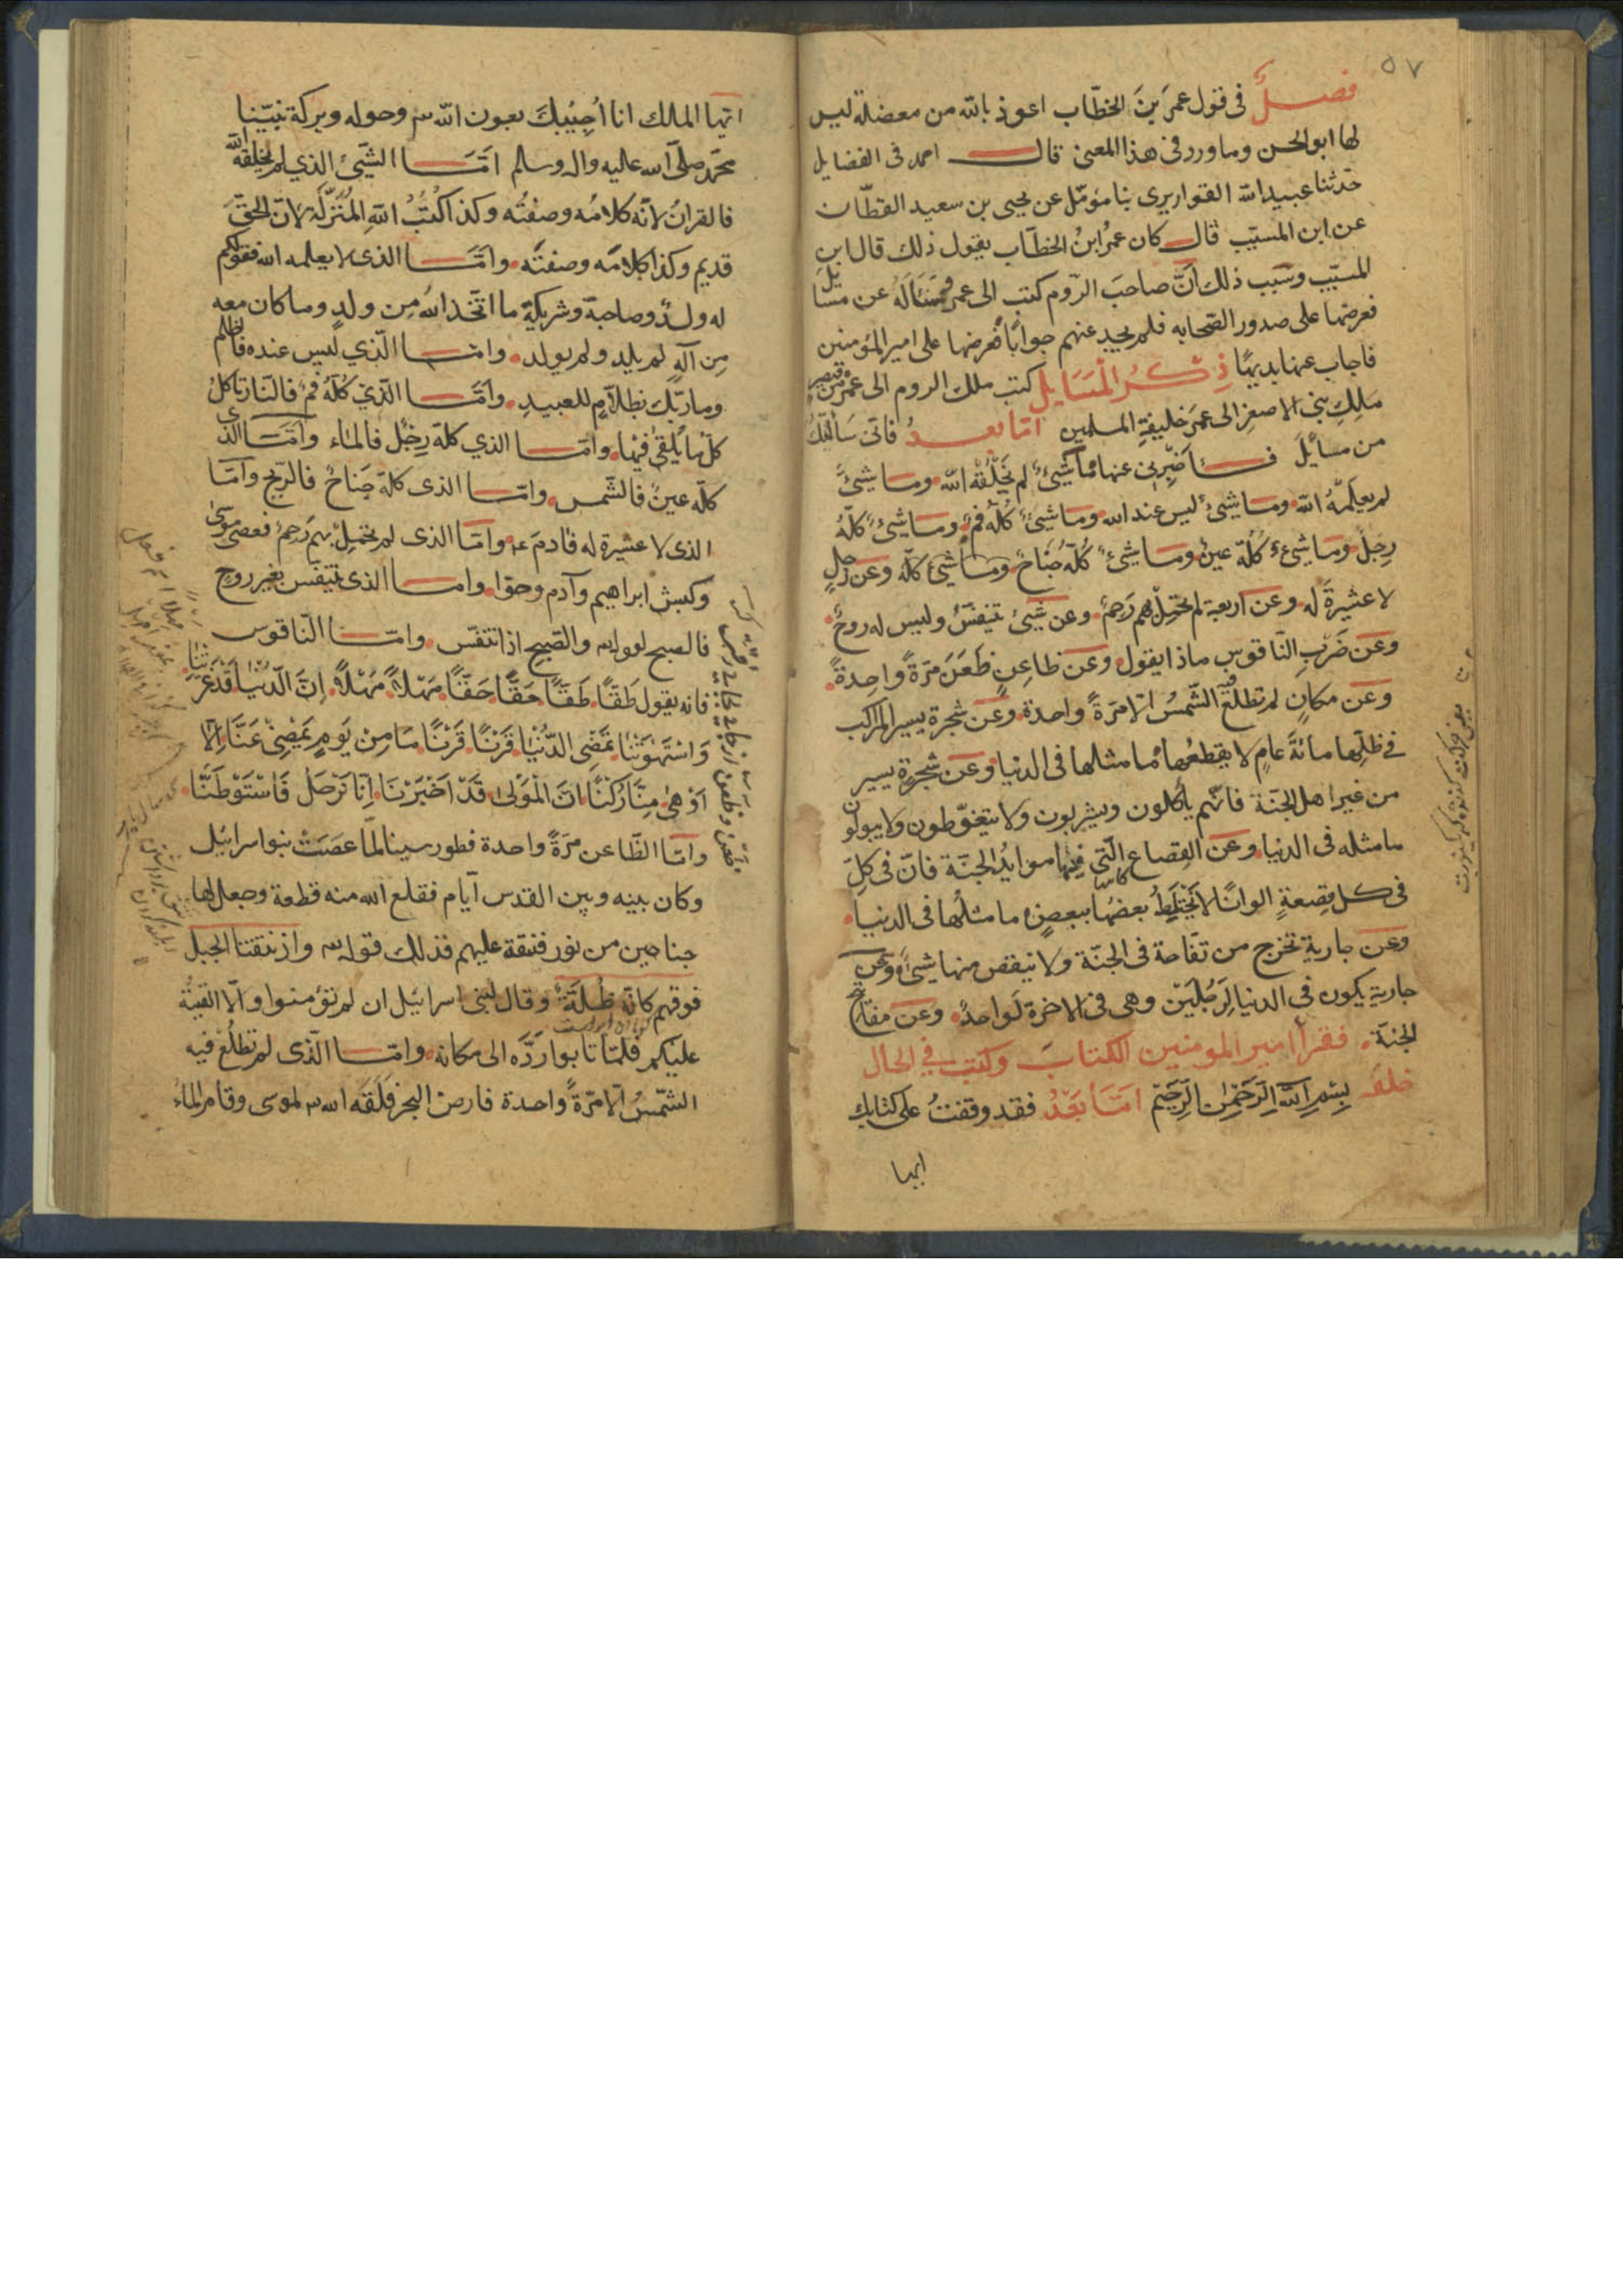 ٥٧
فصل فى قول عمرَ بنَ الخطّاب اعوذ بالله من معضلة ليس
لها ابو الحسن وما ورد فى هذا المعنى قال احمد فى الفضايل
حدثنا عبيد الله القواريرى بنا مؤمّل عن يحيى بن سعيد القطّان
عن ابن المسيّب قال كان عمرُ ابنُ الخطّاب يقول ذلك قال ابن
المسيّب وسَبب ذلك انَّ صاحبَ الرّوم كتب الى عمر يسَألهُ عن مسَائل
فعرضها على صدور الصّحابه فلم يجد عنهم جوابًا فعرضها على امير المؤمنين
فاجاب عنها بديهًا ذِكرُ الْمسَايِل كتب ملك الروم الى عمر من قيصر
مَلِكِ بنى الاصفرِ الى عمرَ خليفةِ المسلمين امّا بعدُ فانى سَألتُكَ
من مسائِلَ فاخبرنى عنها ما شىءٌ لم يَخْلُقْهُ الله وما شىءٌ
لم يعلَمْهُ الله وما شىءٌ ليس عند الله وما شىءٌ كُلّهُ فمٌ وما شىءٌ كلّهُ
رِجلٌ وما شىءٌ كُلّهُ عينٌ وما شىءٌ كُلّهُ جَناحٌ وما شىء كلّه وعن رجلٍ
لا عشيرةَ له وعن اربعةٍ لم يحتملْ بهم رَحِمٌ وعن شىءٍ تنفسّ وليس له روحٌ
وعن ضَرْبِ النّاقوسِ ماذا يقول وعن ظاعِنٍ ظَعَنَ مَرَةً واحِدةً
وعن مكانٍ لم تطلع فيه الشّمسُ الا مَرَةً واحدة وعن شجرة يسير الراكب
فى ظلّها مائةَ عامٍ لا يقطعُها ما مثلها فى الدنيا وعن شجرةٍ يسير
من غير اهل الجنّة فانّهم يأكلون ويشربون ولا يتغوّطون ولا يبولون
ما مثله فى الدنيا وعن القِصاع الّتى فيها موايدُ الجنّة فانّ فى كلِّ
فى كل قِصعةٍ الوانًا لا يَخْتلِطُ بعضُها ببعضٍ ما مثلُها فى الدنيا
وعن جاريةٍ تخرج من تفّاحة فى الجنّة ولا ينقص منها شىءٌ وعن
جاريةٍ يكون فى الدنيا لِرَجُلَيْن وهى فى الاخرة لواحدٍ وعن مفاتيح
الجنّة فقرأ امير المومنين الكتابَ وكتب فى الحال
خلفَه بِسْمِ اللهِ الرَّحْمٰنِ الرَّحِيمِ امّا بَعْدُ فقد وقفتُ على كتابك
ايها
ايّها الملك انا اُجِيْبُكَ بعون الله وحوله وبركة نبيّنا
محمّد صلّى الله عليه واله وسلم امّا الشّىءُ الذي لم يخلقهُ الله
فالقرانُ لانّه كلامُه وصفتُه وكذا كُتُبُ اللهِ المُنَزّلة لانّ الحقَّ
قديم وكذا كلامُه وصفتُه وامّا الذى لا يعلمه الله فقولكم
له ولدٌ وصاحبةٌ وشريكٌ ما اتّخذ اللهُ مِن ولدٍ وما كان معه
مِن آلهٍ لم يلد ولم يولد وامّا الّذي ليس عنده فالظلم
وما ربّك بظلّامٍ للعبيدِ وامّا الّذي كُلّهُ فمٌ فالنّار تاكلُ
كلّ ما يُلقى فيها وامّا الذي كلهُ رِجْلٌ فالماء وامّا الذى
كلّه عينٌ فالشّمس وامّا الذى كلهُ جَناحٌ فالرّيح وامّا
الذى لا عشيرة له فآدمَ وامّا الذى لم يحتمِلْ بهم رَحِمٌ فعصى موسىٰ
وكبش ابراهيم وآدم وحوّا وامّا الذى يتنفّس بغير روح
فالصبح لقوله والصّبح اذا تنفّس وامّا النّاقوس
فانه يقول طَقًا طَقًا حَقًا حَقًا مَهْلًا مَهْلًا اِنَّ الدّنْيَا قَدْ غَرّتْنَا
وَاسْتَهْوَتْنَا تَمْضِى الدُّنْيَا قَرْنًا قَرْنًا مَا مِنْ يَومٍ يَمْضِىْ عَنَّا اِلّا
اَوْهىٰ مِنَّا رُكْنًا انَّ الْمَوْلىٰ قَدْ اَخْبَرَنَا اِنّا نَرْحَلْ فَاسْتَوْطَنَّا
وامّا الظّاعن مَرَةً واحدة فطور سينا لمّا عَصَتْ بنو اسرائيل
وكان بينه وبين القدس ايّام فقلع الله منه قطعة وجعل لها
جناحين من نور فنتقه عليهم فذلك قوله واذ نتقنا الجبل
فوقهم كانّه ظُلّةٌ وقال لبنى اسرائيل ان لم تؤمنوا والّا القيتُه
عليكم فلمّا تابوا ردَّه الى مكانه وامّا الّذى لم تطلُعْ فيه
الشّمسُ الا مرّةً واحدة فارض البحر فلقه الله لموسى وقام الماءُ